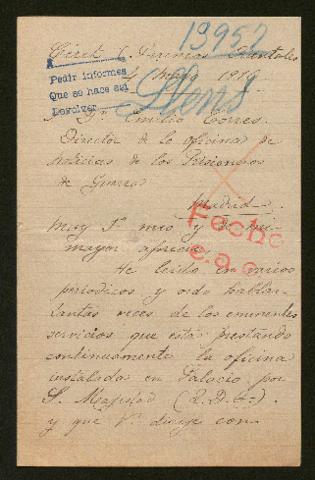 13957
Céret (Pirineos Orientales
4 Mayo 1919
A
Pedir informes
Que se hace así
Devolver
Sr. Dn. Emilio Torres.
Director de la oficina de
noticias de los Prisioneros
de Guerra
Madrid.
Fecho
Muy Sr. mio y de mi
mayor aprecio
He leido en varios
periodicos y oido hablar
tantas veces de los eminentes
servicios que está prestando
continuamente la oficina
instalada en Palacio por
S. Majestad (Q. D. G.)
y que V. dirije con